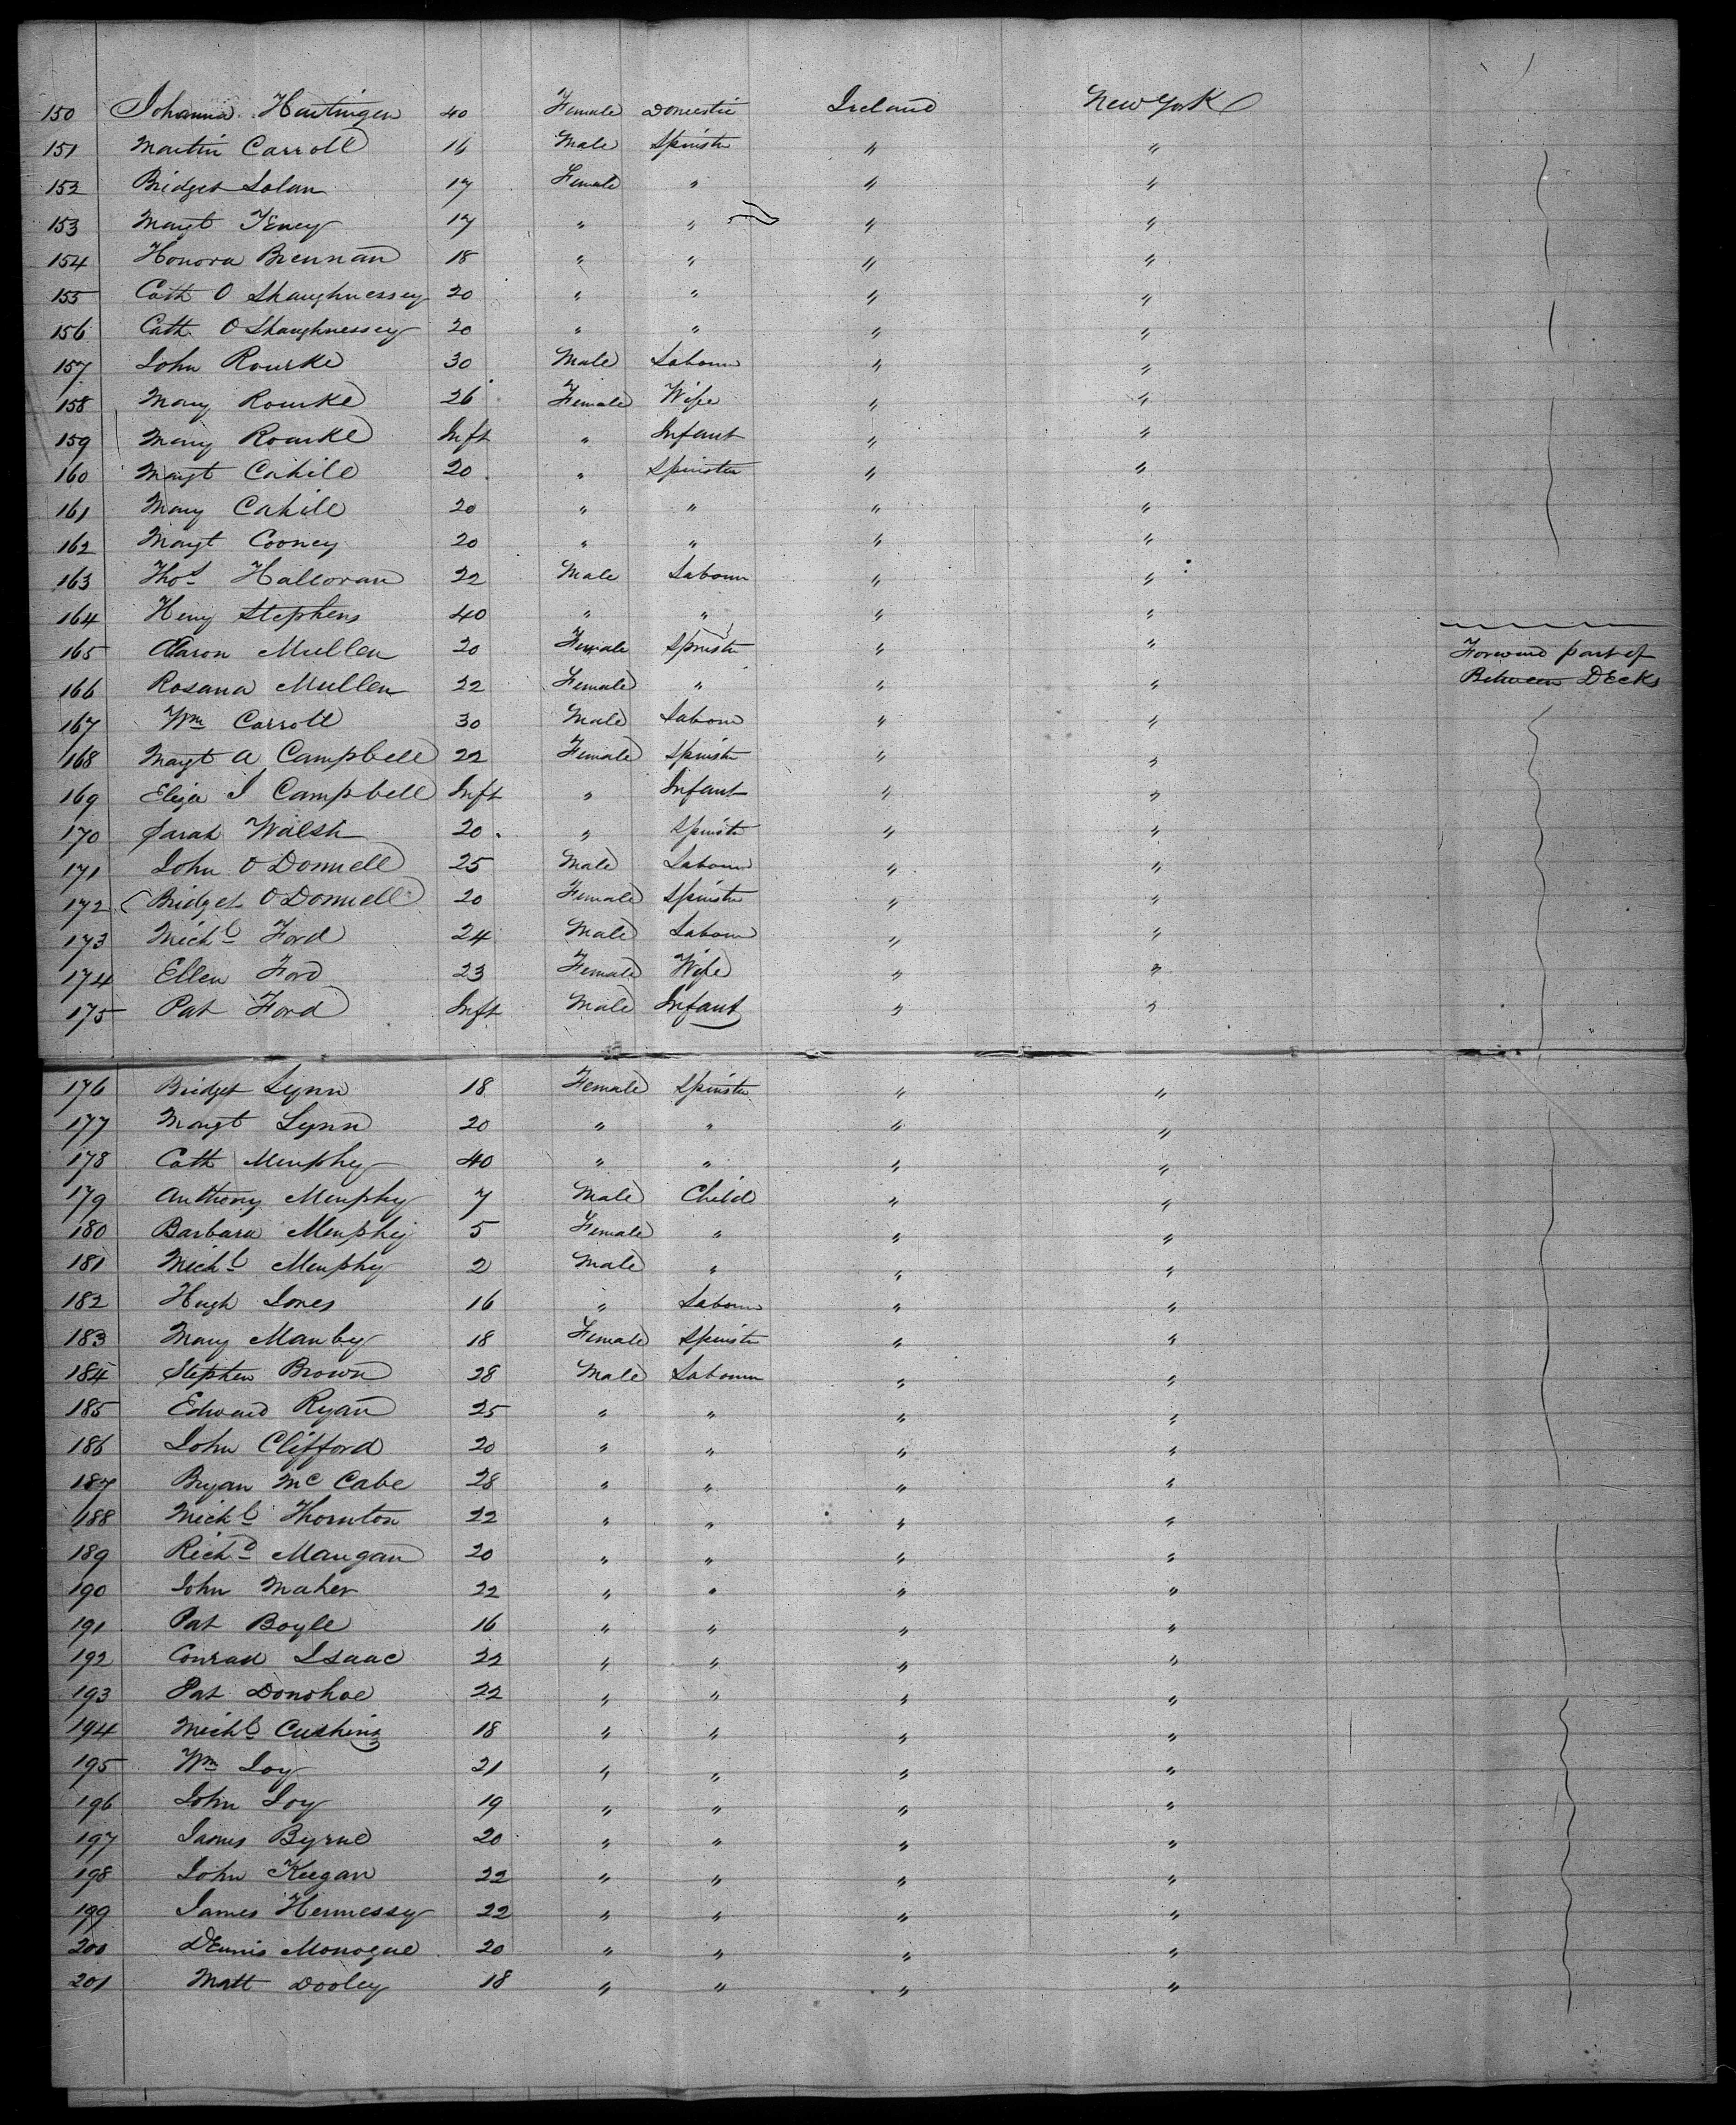 150 Johanna Hartingen 40 Female Domestic Ireland New York
151 Martin Carroll 16 Male Spinstr " "
152 Bridget Solan 17 Female " " "
153 Margt 17 " " " "
154 Honora Brennan 18 " " " "
155 Cath O Shaughnessey 20 " " " "
156 Cath O Shaughnessey 20 " " " "
157 John Rourke 30 Male Labour " "
158 Mary Rourke 26 Female Wife " "
159 Mary Rourke Inft " Infant " "
160 Margt Cahill 20 " Spinster " "
161 Mary Cahill 20 " " " "
162 Margt Cooney 20 " " " "
163 Thos Halloran 22 Male Labour " "
164 Henry Stephens 40 " " " "
165 Aaron Mullen 20 Female Spinstr " " Forward part of
166 Rosana Mullen 22 Female " " " Between Decks
167 Wm Carroll 30 Male Labour " "
168 Margt A Campbell 22 Female Spinstr " "
169 Eliza J Campbell Inft " Infant " "
170 Sarah Walsh 20 " Spinstr " "
171 John O Donnell 25 Male Labour " "
172 Bridget O Donnell 20 Female Spinstr " "
173 Michl Ford 24 Male Labour " "
174 Ellen Ford 23 Female Wife " "
175 Pat Ford Inft Male Infant " "
176 Bridget Lynn 18 Female Spinstr " "
177 Margt Lynn 20 " " " "
178 Cath Murphy 40 " " " "
179 Anthony Murphy 7 Male Child " "
180 Barbara Murphy 5 Female " " "
181 Michl Murphy 2 Male " " "
182 Hugh Jones 16 " Labour " "
183 Mary Manby 18 Female Spinstr " "
184 Stephen Brown 28 Male Labour " "
185 Edward Ryan 25 " " " "
186 John Clifford 20 " " " "
187 Bryan Mc Cabe 28 " " " "
188 Michl Thornton 22 " " " "
189 Richd Mangan 20 " " " "
190 John Maher 22 " " " "
191 Pat Boyle 16 " " " "
192 Conrad Isaac 22 " " " "
193 Pat Donohoe 22 " " " "
194 Michl Cushing 18 " " " "
195 Wm Joy 21 " " " "
196 John Joy 19 " " " "
197 James Byrne 20 " " " "
198 John Keegan 22 " " " "
199 James Hennessy 22 " " " "
200 Dennis Monogue 20 " " " "
201 Matt Dooley 18 " " " "